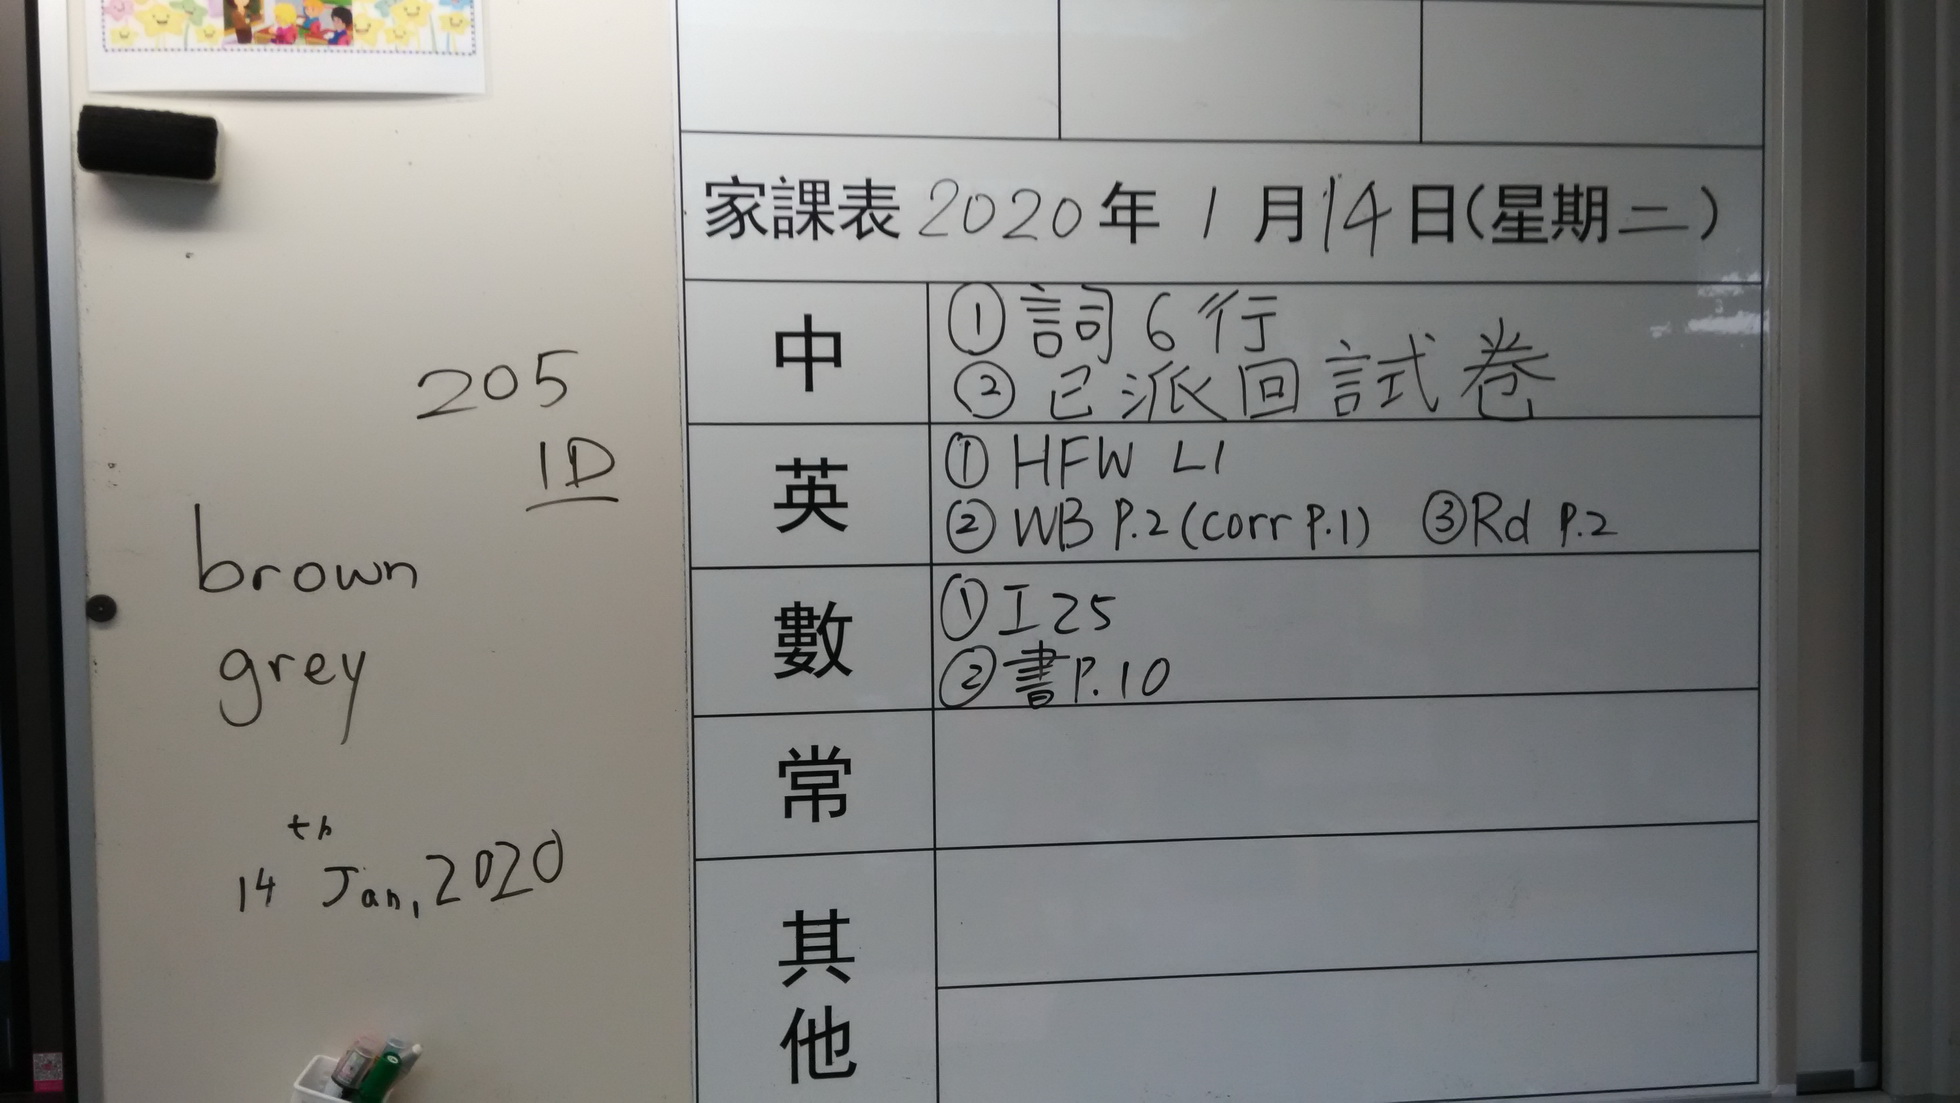 205
1D
brown
grey
th
14 Jan, 2020
家課表 2020 年 1 月 14 日(星期二)
中
① 詞 6 行
② 已派回試卷
英
① HFW L1
② WB P.2 (corr P.1) ③ Rd P.2
數
① I 25
② 書 P.10
常
其
他